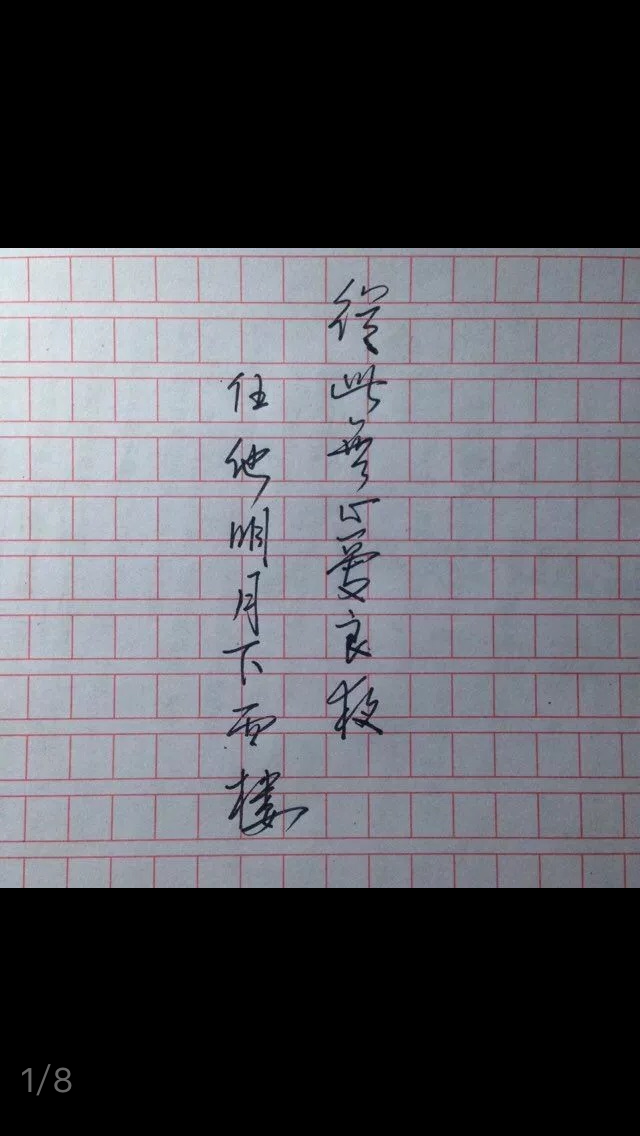 從此無心愛良夜
任他明月下西樓
1/8